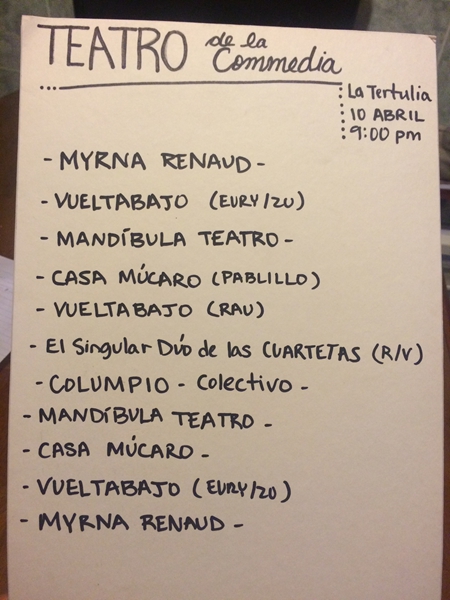 TEATRO de la Commedia
La Tertulia
10 ABRIL
9:00 pm
- MYRNA RENAUD -
- VUELTABAJO (EURY/ZU)
- MANDÍBULA TEATRO -
- CASA MÚCARO (PABLILLO)
- VUELTABAJO (RAU)
- El Singular Dúo de las CUARTETAS (R/V)
- COLUMPIO - Colectivo -
- MANDÍBULA TEATRO -
- CASA MÚCARO -
- VUELTABAJO (EURY/ZU)
- MYRNA RENAUD -